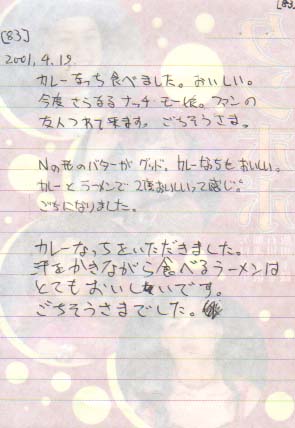 [83]
2001.4.19
カレーなっち食べました。おいしい。
今度
ナッチ モー娘。ファンの
友人つれて来ます。ごちそうさま。
Nの形のバターがグッド。カレーなっちもおいしい。
カレーとラーメンで2度おいしいって感じ。
ごちになりました。
カレーなっちをいただきました。
汗をかきながら食べるラーメンは
とてもおいしいです。
ごちそうさまでした。